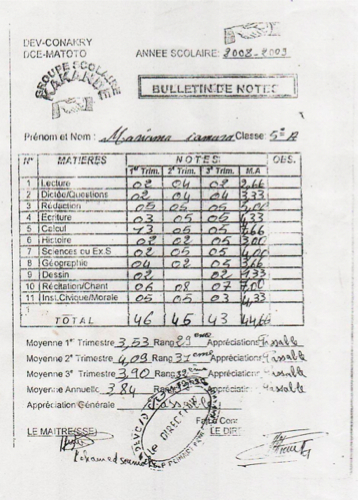 DEV-CONAKRY
DCE-MATOTO
GROUPE SCOLAIRE
KAKANDE
ANNEE SCOLAIRE: 2008-2009
BULLETIN DE NOTES
Prénom et Nom : Mariama Camara Classe: 5è A
N° MATIERES NOTES OBS.
1er Trim. 2e Trim. 3e Trim. M.A
1 Lecture 02 04 02 2,66
2 Dictée/Questions 02 04 04 3,33
3 Rédaction 05 05 05 5,00
4 Ecriture 03 05 05 4,33
5 Calcul 13 05 05 7,66
6 Histoire 02 02 05 3,00
7 Sciences ou Ex.S 02 05 05 4,00
8 Géographie 04 02 05 3,66
9 Dessin 02 02
10 Récitation/Chant 06 08 07 7,00
11 Inst.Civique/Morale 05 05 03 4,33
TOTAL 46 45 43
Moyenne 1er Trimestre 3,53 Rang 29ème Appréciation Passable
Moyenne 2e Trimestre 4,09 Rang Appréciation Passable
Moyenne 3e Trimestre 3,90 Rang Appréciation Passable
Moyenne Annuelle 3,84 Rang Appréciation Passable
Appréciation Générale Passable
LE MAITRE(SSE) LE DIRE
LE DIRECTEUR